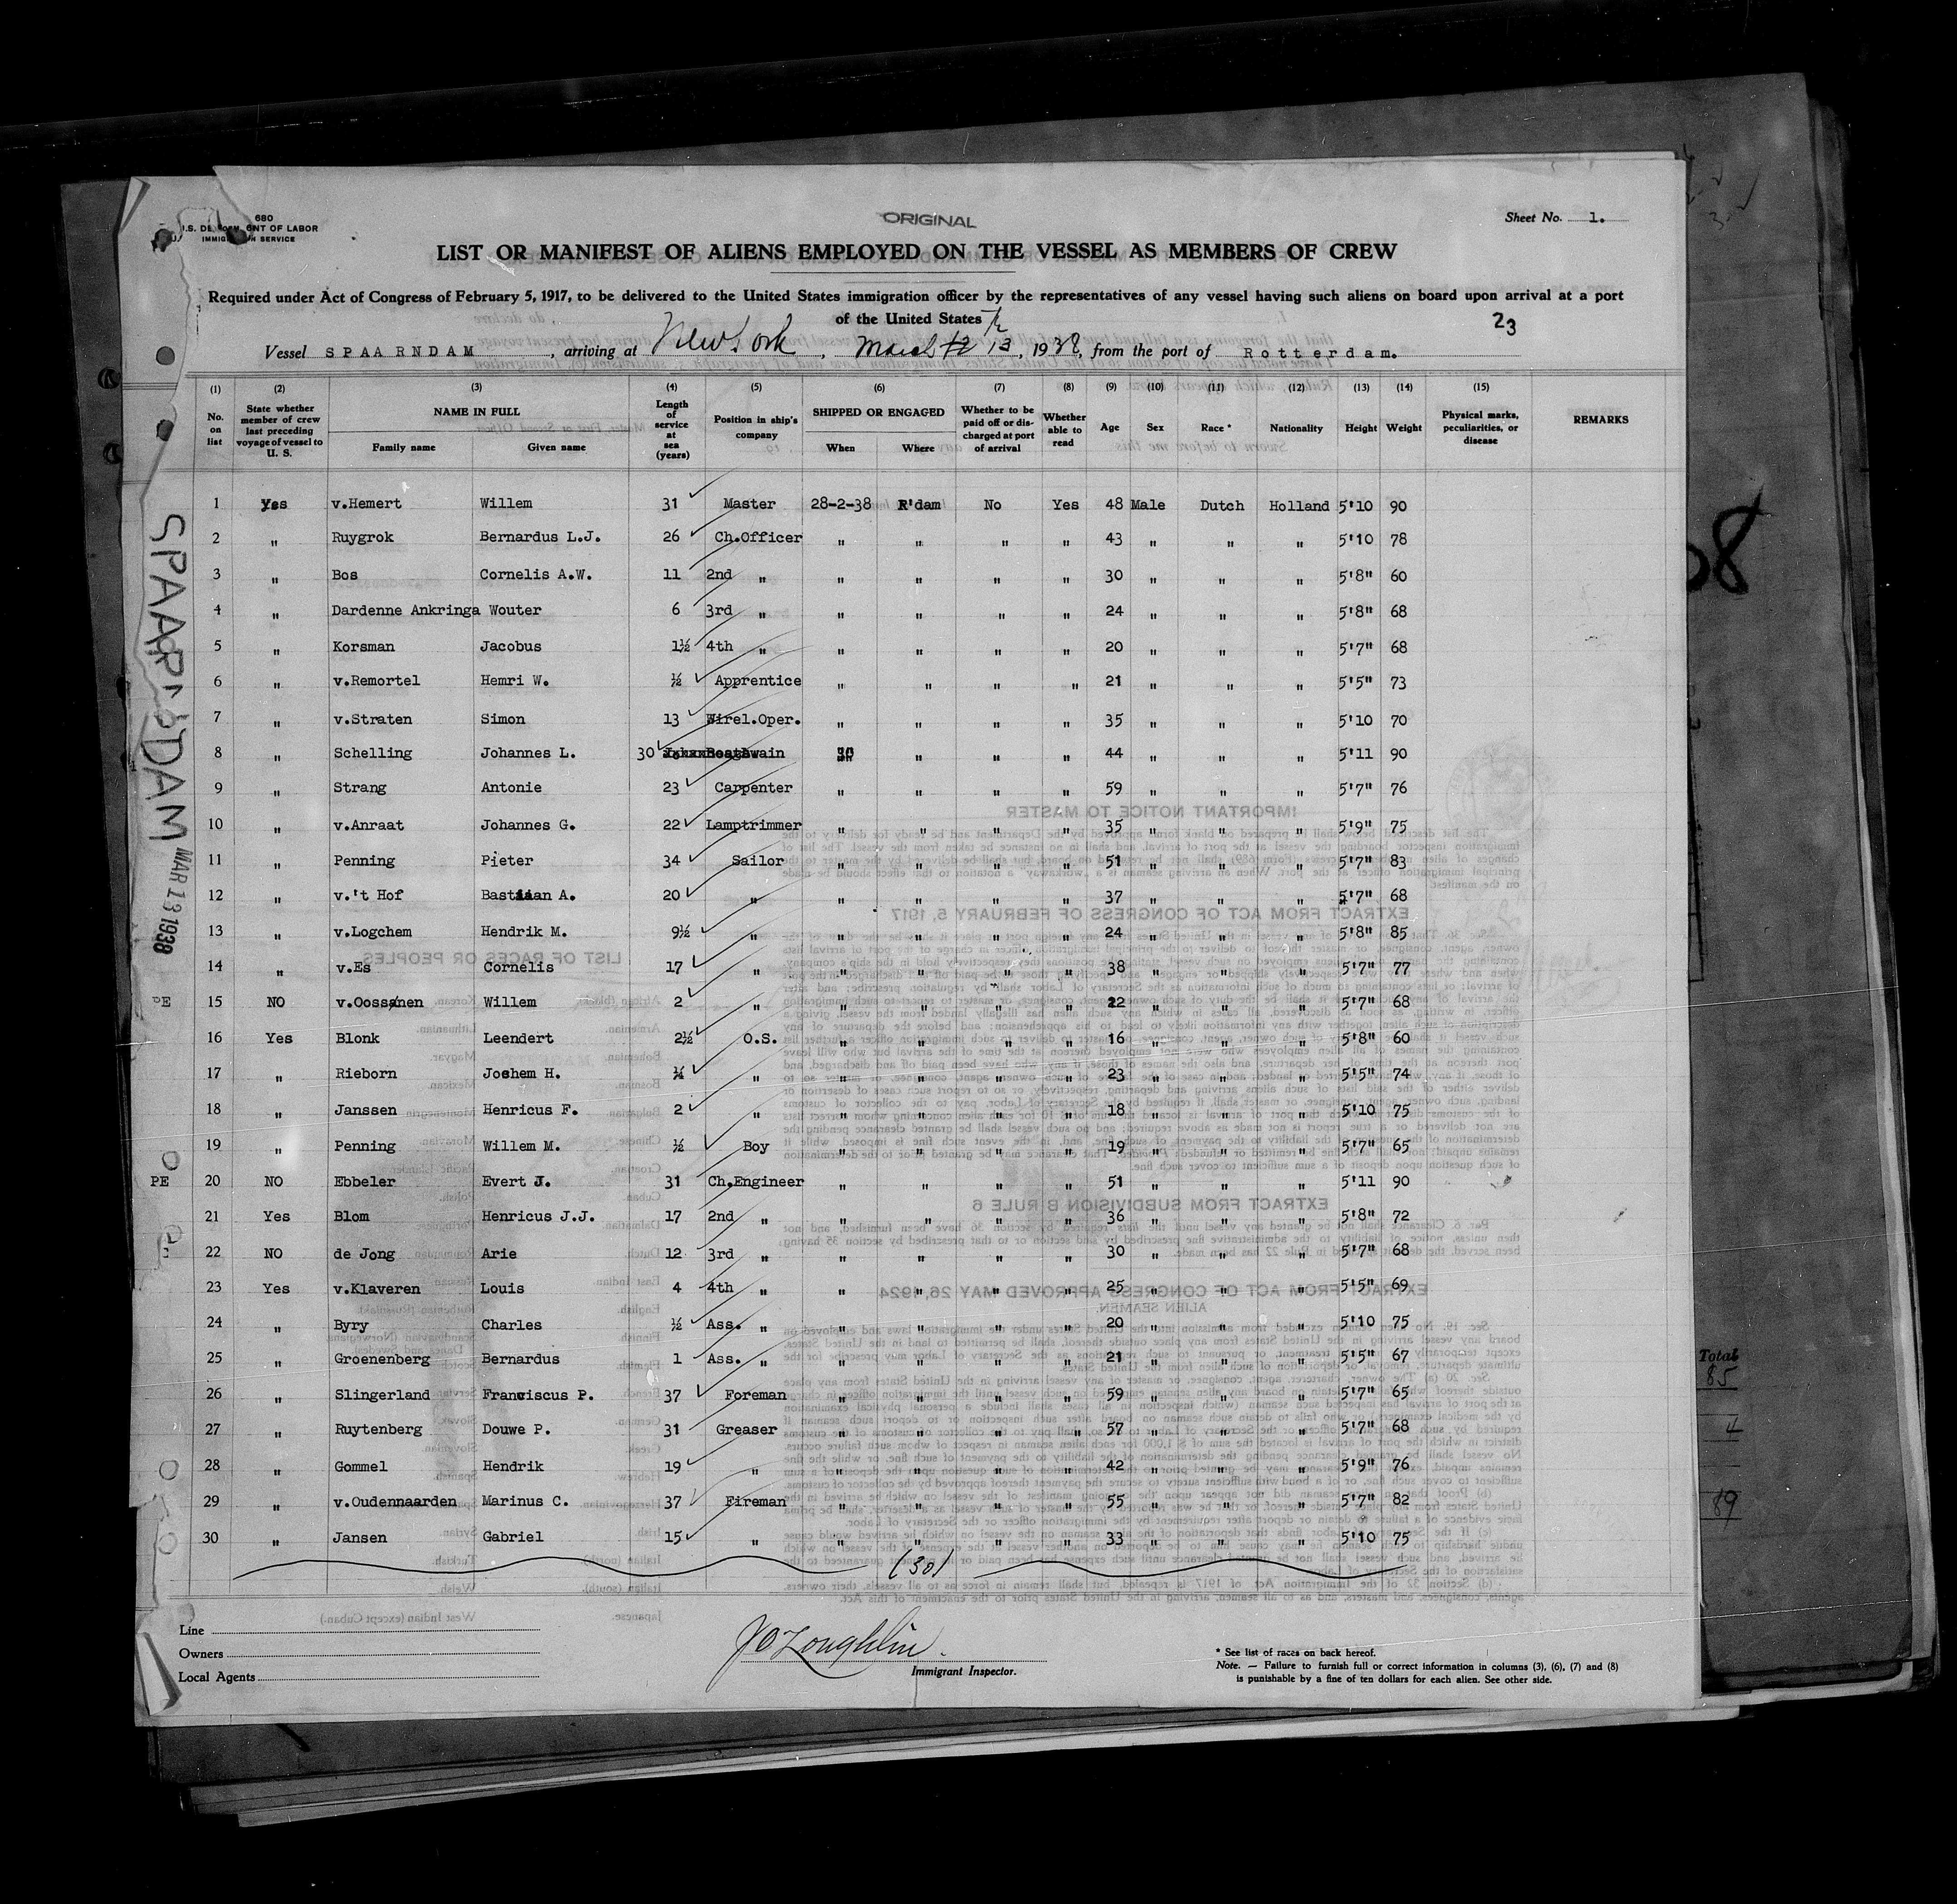 680
U.S. DE NT OF LABOR
IMMIG N SERVICE
ORIGINAL
Sheet No. 1.
LIST OR MANIFEST OF ALIENS EMPLOYED ON THE VESSEL AS MEMBERS OF CREW
Required under Act of Congress of February 5, 1917, to be delivered to the United States immigration officer by the representatives of any vessel having such aliens on board upon arrival at a port
of the United States
23
Vessel SPAARNDAM, arriving at New York, March 12 13, 1938, from the port of Rotterdam.
(1) (2) (3) (4) (5) (6) (7) (8) (9) (10) (11) (12) (13) (14) (15)
No. on list | State whether member of crew last preceding voyage of vessel to U. S. | NAME IN FULL Family name Given name | Length of service at sea (years) | Position in ship's company | SHIPPED OR ENGAGED When Where | Whether to be paid off or discharged at port of arrival | Whether able to read | Age | Sex | Race * | Nationality | Height | Weight | Physical marks, peculiarities, or disease | REMARKS
1 Yes v.Hemert Willem 31 Master 28-2-38 R'dam No Yes 48 Male Dutch Holland 5'10 90
2 " Ruygrok Bernardus L.J. 26 Ch.Officer " " " " 43 " " " 5'10 78
3 " Bos Cornelis A.W. 11 2nd " " " " " 30 " " " 5'8" 60
4 " Dardenne Ankringa Wouter 6 3rd " " " " " 24 " " " 5'8" 68
5 " Korsman Jacobus 1½ 4th " " " " " 20 " " " 5'7" 68
6 " v.Remortel Hemri W. ½ Apprentice " " " " 21 " " " 5'5" 73
7 " v.Straten Simon 13 Wirel.Oper. " " " " 35 " " " 5'10 70
8 " Schelling Johannes L. 30 Boatswain " " " " 44 " " " 5'11 90
9 " Strang Antonie 23 Carpenter " " " " 59 " " " 5'7" 76
10 " v.Anraat Johannes G. 22 Lamptrimmer " " " " 35 " " " 5'9" 75
11 " Penning Pieter 34 Sailor " " " " 51 " " " 5'7" 83
12 " v.'t Hof Bastiaan A. 20 " " " " " 37 " " " 5'7" 68
13 " v.Logchem Hendrik M. 9½ " " " " " 24 " " " 5'8" 85
14 " v.Es Cornelis 17 " " " " " 38 " " " 5'7" 77
PE 15 NO v.Oossanen Willem 2 " " " " " 22 " " " 5'7" 68
16 Yes Blonk Leendert 2½ O.S. " " " " 16 " " " 5'8" 60
17 " Rieborn Jochem H. ¼ " " " " " 23 " " " 5'5" 74
18 " Janssen Henricus F. 2 " " " " " 18 " " " 5'10 75
19 " Penning Willem M. ½ Boy " " " " 19 " " " 5'7" 65
PE 20 NO Ebbeler Evert J. 31 Ch.Engineer " " " " 51 " " " 5'11 90
21 Yes Blom Henricus J.J. 17 2nd " " " " " 36 " " " 5'8" 72
22 NO de Jong Arie 12 3rd " " " " " 30 " " " 5'7" 68
23 Yes v.Klaveren Louis 4 4th " " " " " 25 " " " 5'5" 69
24 " Byry Charles ½ Ass. " " " " " 20 " " " 5'10 75
25 " Groenenberg Bernardus 1 Ass. " " " " " 21 " " " 5'5" 67
26 " Slingerland Franciscus P. 37 Foreman " " " " 59 " " " 5'7" 65
27 " Ruytenberg Douwe P. 31 Greaser " " " " 57 " " " 5'7" 68
28 " Gommel Hendrik 19 " " " " " 42 " " " 5'9" 76
29 " v.Oudennaarden Marinus C. 37 Fireman " " " " 55 " " " 5'7" 82
30 " Jansen Gabriel 15 " " " " " 33 " " " 5'10 75
(30)
SPAARNDAM
MAR 13 1938
Line
Owners
Local Agents
J O'Loughlin
Immigrant Inspector.
* See list of races on back hereof.
Note. — Failure to furnish full or correct information in columns (3), (6), (7) and (8)
is punishable by a fine of ten dollars for each alien. See other side.
Total
85
4
89